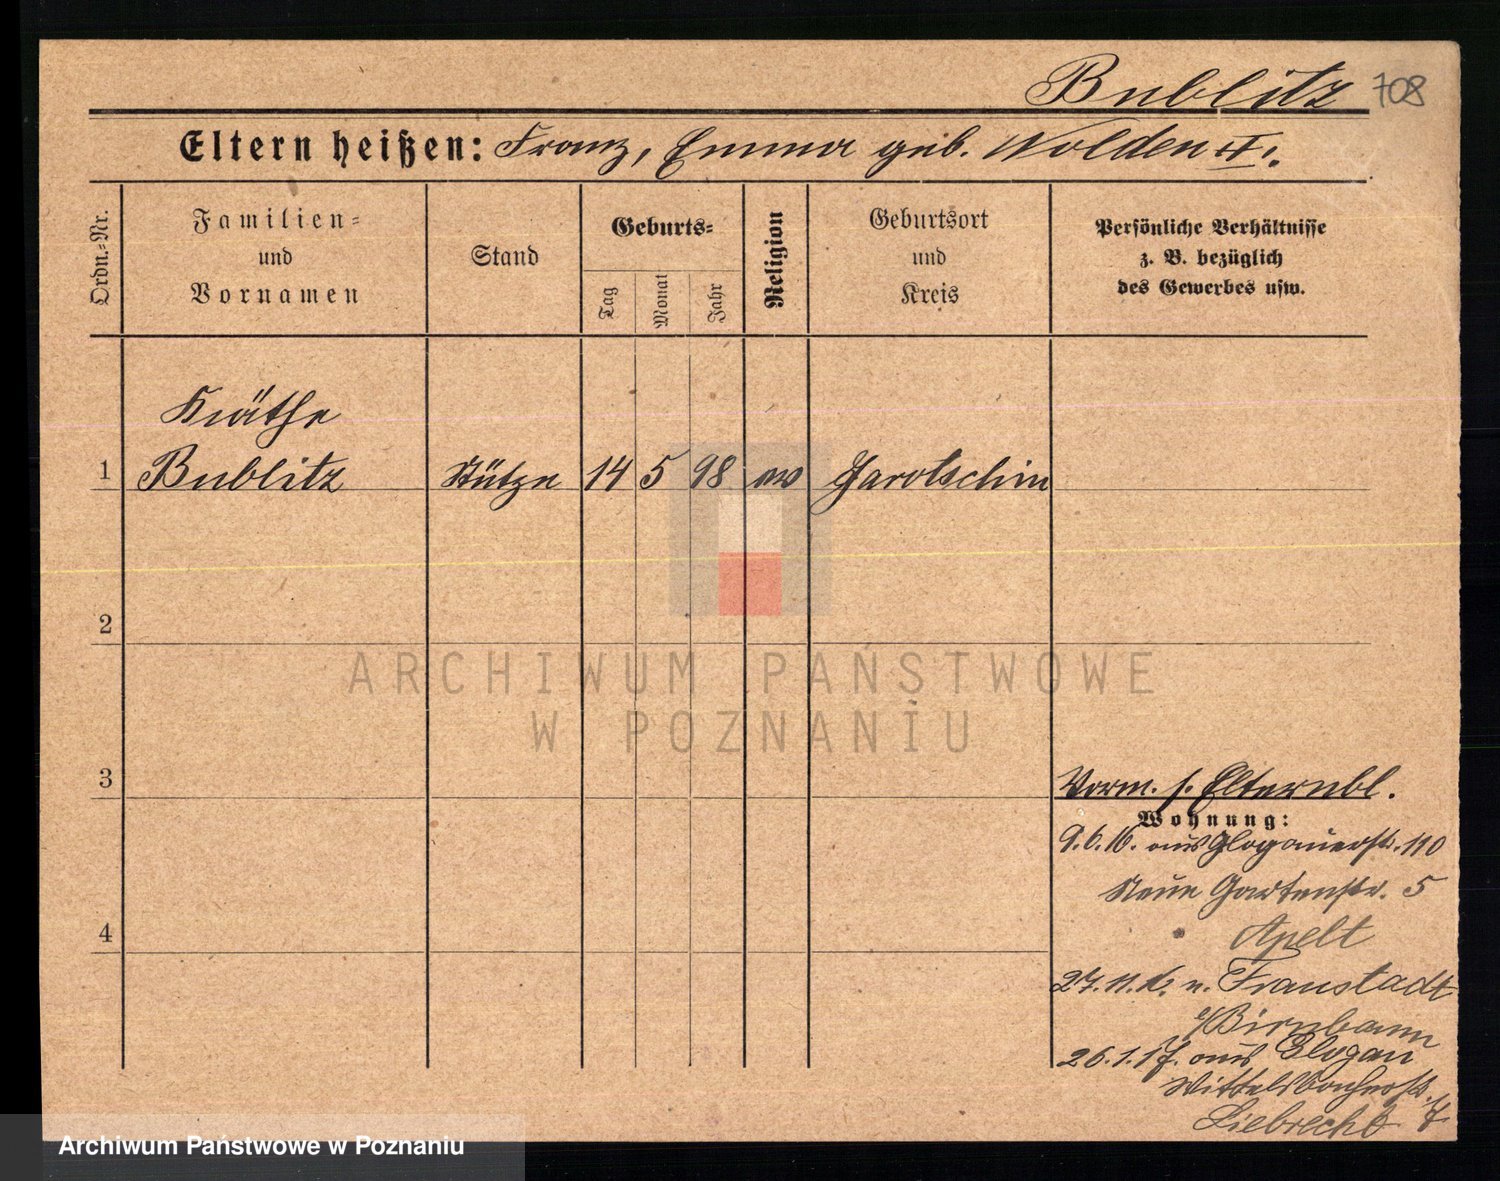 Bublitz 708
Eltern heißen: Franz, Emma geb. Wolden
Ordn.=Nr.
Familien=
und
Vornamen
Stand
Geburts=
Tag
Monat
Jahr
Religion
Geburtsort
und
Kreis
Persönliche Verhältnisse
z. B. bezüglich
des Gewerbes usw.
Käthe
1 Bublitz Stütze 14 5 98 ev Jarotschin
2
3
4
Vorm. s. Elternbl.
Wohnung:
9.6.16. aus Glogauerstr. 110
Neue Gartenstr. 5
Apelt
27.11.16. n. Fraustadt
b/Birnbaum
26.1.17. aus Glogau
Wittelsbacherstr. 7
Liebrecht
ARCHIWUM PAŃSTWOWE
W POZNANIU
Archiwum Państwowe w Poznaniu